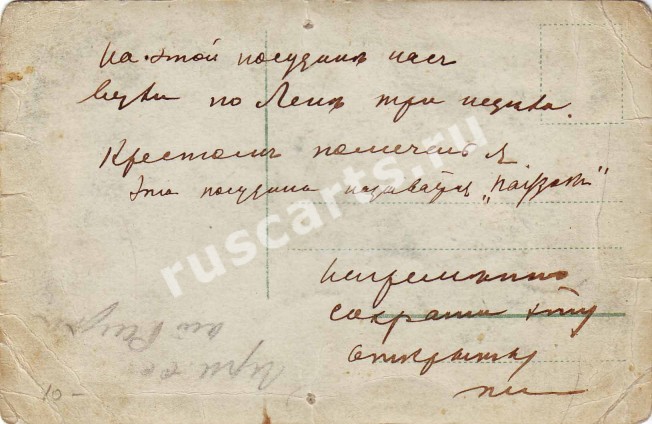 На этой посудинѣ насъ
везли по Ленѣ три недѣли.
Крестомъ помеченъ я.
Эта посудина называется „паузокъ“
непременно
сохрани эту
открытку
10 -
ruscarts.ru